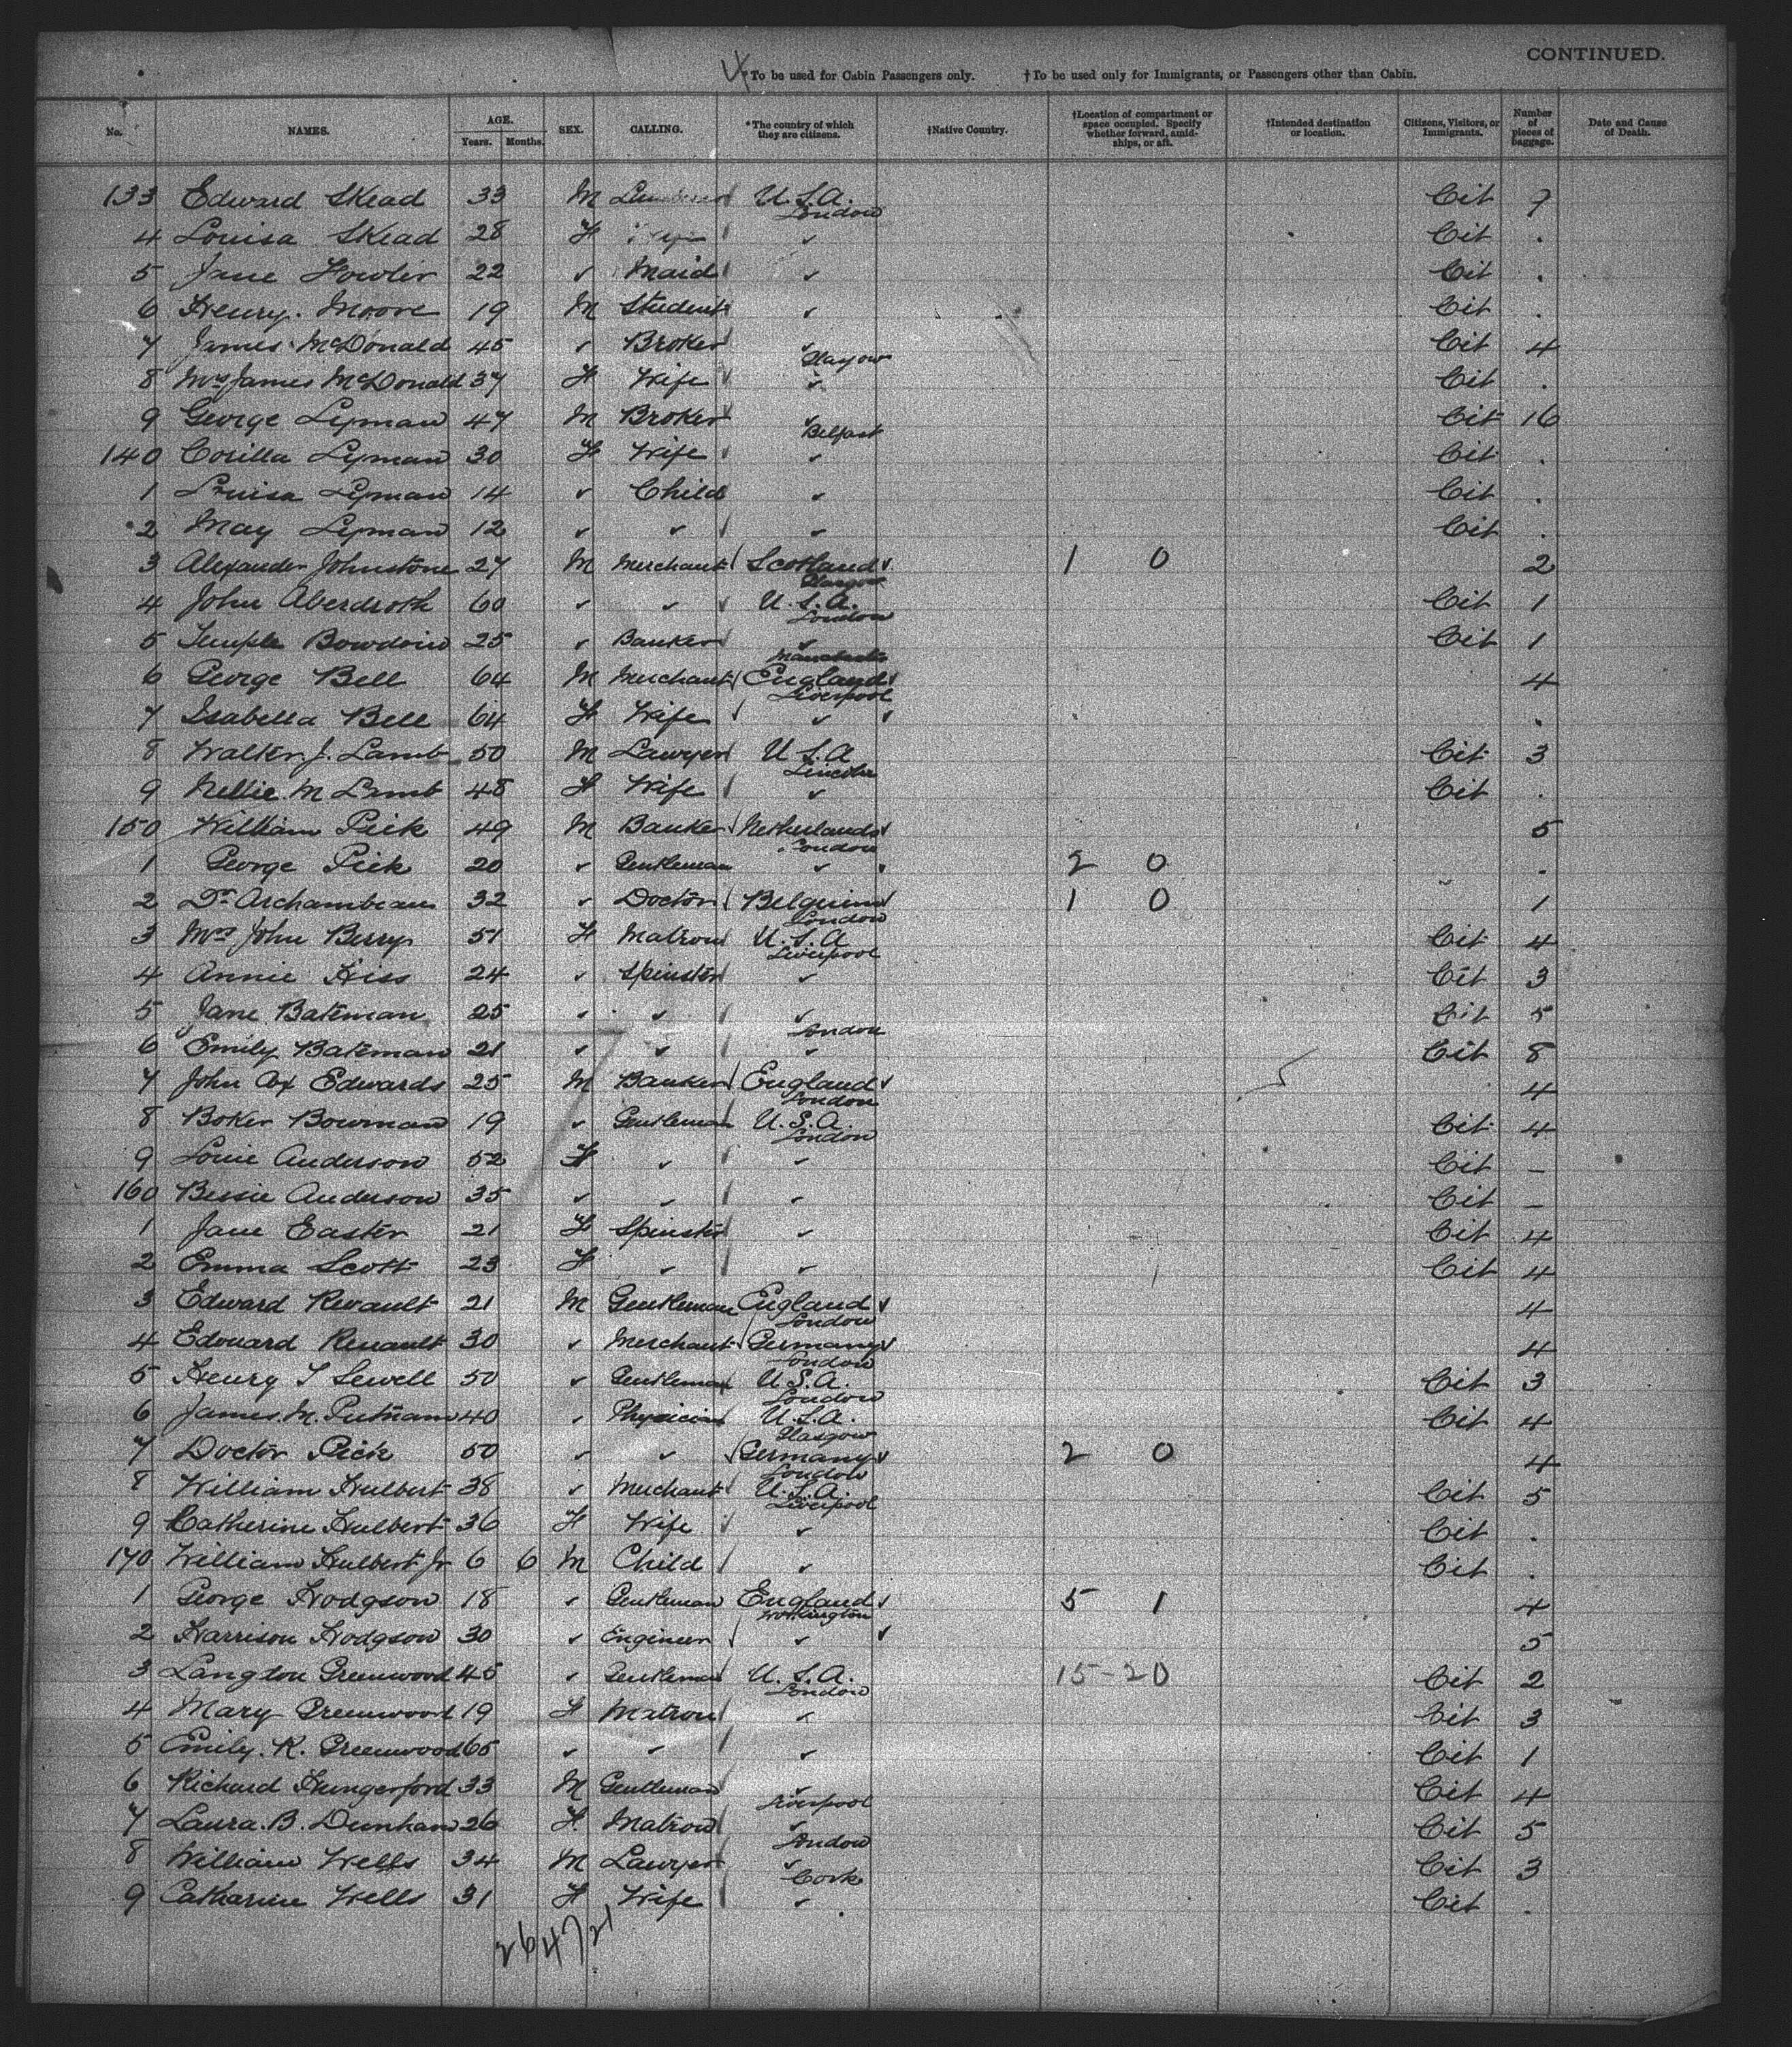 CONTINUED.
*To be used for Cabin Passengers only. †To be used only for Immigrants, or Passengers other than Cabin.
No. NAMES. AGE. Years. Months. SEX. CALLING. *The country of which they are citizens. †Native Country. †Location of compartment or space occupied. Specify whether forward, amidships, or aft. †Intended destination or location. Citizens, Visitors, or Immigrants. Number of pieces of baggage. Date and Cause of Death.
133 Edward Skead 33 M U.S.A. London Cit 7
4 Louisa Skead 28 F ✓ Cit .
5 Jane Fowler 22 ✓ Maid ✓ Cit .
6 Henry Moore 19 M Student ✓ Cit .
7 James McDonald 45 ✓ Broker ✓ Glasgow Cit 4
8 Mrs James McDonald 37 F Wife ✓ Cit .
9 George Lyman 47 M Broker ✓ Belfast Cit 16
140 Corilla Lyman 30 F Wife ✓ Cit .
1 Louisa Lyman 14 ✓ Child ✓ Cit .
2 May Lyman 12 ✓ ✓ ✓ Cit .
3 Alexander Johnstone 27 M Merchant Scotland Glasgow 1 0 2
4 John Aberdroth 60 ✓ ✓ U.S.A. London Cit 1
5 Temple Bowdoin 25 ✓ Banker ✓ Cit 1
6 George Bell 64 M Merchant England Liverpool 4
7 Isabella Bell 64 F Wife ✓ .
8 Walter J. Lamb 50 M Lawyer U.S.A Lincoln Cit 3
9 Nellie M Lamb 48 F Wife ✓ Cit .
150 William Pick 49 M Banker Netherlands London 5
1 George Pick 20 ✓ Gentleman ✓ 2 0 .
2 Dr Archambeau 32 ✓ Doctor Belguim London 1 0 1
3 Mrs John Berry 51 F Matron U.S.A Liverpool Cit 4
4 Annie Hiss 24 ✓ Spinster ✓ Cit 3
5 Jane Bateman 25 ✓ ✓ ✓ London Cit 5
6 Emily Bateman 21 ✓ ✓ ✓ Cit 8
7 John Cox Edwards 25 M Banker England London 4
8 Boker Bowman 19 ✓ Gentleman U.S.A. London Cit 4
9 Louie Anderson 52 F ✓ ✓ Cit –
160 Bessie Anderson 35 ✓ ✓ ✓ Cit –
1 Jane Easter 21 F Spinster ✓ Cit 4
2 Emma Scott 23 F ✓ ✓ Cit 4
3 Edward Renault 21 M Gentleman England London 4
4 Edouard Renault 30 ✓ Merchant Germany London 4
5 Henry T Sewell 50 ✓ Gentleman U.S.A. London Cit 3
6 James M. Putnam 40 ✓ Physician U.S.A. Glasgow Cit 4
7 Doctor Pick 50 ✓ ✓ Germany London 2 0 4
8 William Hulbert 38 ✓ Merchant U.S.A. Liverpool Cit 5
9 Catherine Hulbert 36 F Wife ✓ Cit .
170 William Hulbert Jr 6 6 M Child ✓ Cit .
1 George Hodgson 18 ✓ Gentleman England Workington 5 1 4
2 Harrison Hodgson 30 ✓ Engineer ✓ 5
3 Langdon Greenwood 45 ✓ Gentleman U.S.A. London 15-20 Cit 2
4 Mary Greenwood 19 F Matron ✓ Cit 3
5 Emily K. Greenwood 65 ✓ ✓ ✓ Cit 1
6 Richard Hungerford 33 M Gentleman ✓ Liverpool Cit 4
7 Laura B. Dunham 26 F. Matron ✓ London Cit 5
8 William Wells 34 M Lawyer ✓ Cork Cit 3
9 Catharine Wells 31 F Wife ✓ Cit .